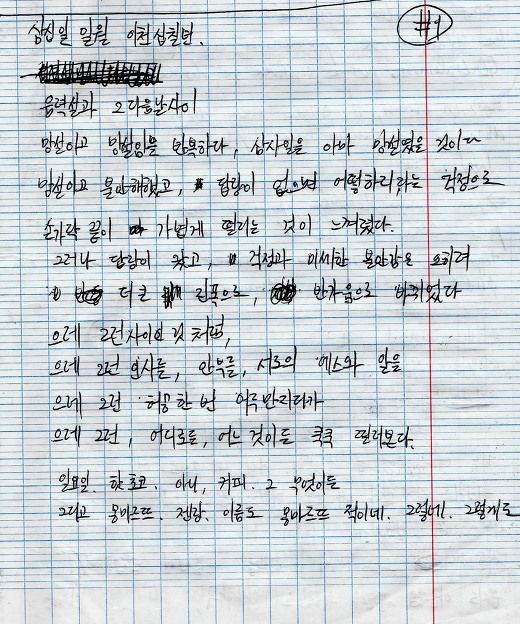 #1
삼십일 일월 이천십칠년.
음력설과 그 다음날 사이
망설이고 망설임을 반복하다, 삼사일을 아마 망설였을 것이다
망설이고 불안해했고, 답장이 없으면 어떡하리라는 걱정으로
손가락 끝이 가볍게 떨리는 것이 느껴졌다.
그러나 답장이 왔고, 걱정과 미세한 불안감은 오히려
더 큰 진폭으로, 반가움으로 바뀌었다
으레 그런 사이인 것처럼,
으레 그런 인사를, 안부를, 서로의 예스와 일을
으레 그런 허공 한 번 어루만지다가
으레 그런, 어디로든, 어느 것이든 쿡쿡 찔러본다.
일요일. 핫초코. 아니, 커피. 그 무엇이든
그리고 몽마르뜨. 젠장. 이름도 몽마르뜨 적이네. 그렇네. 그렇게도